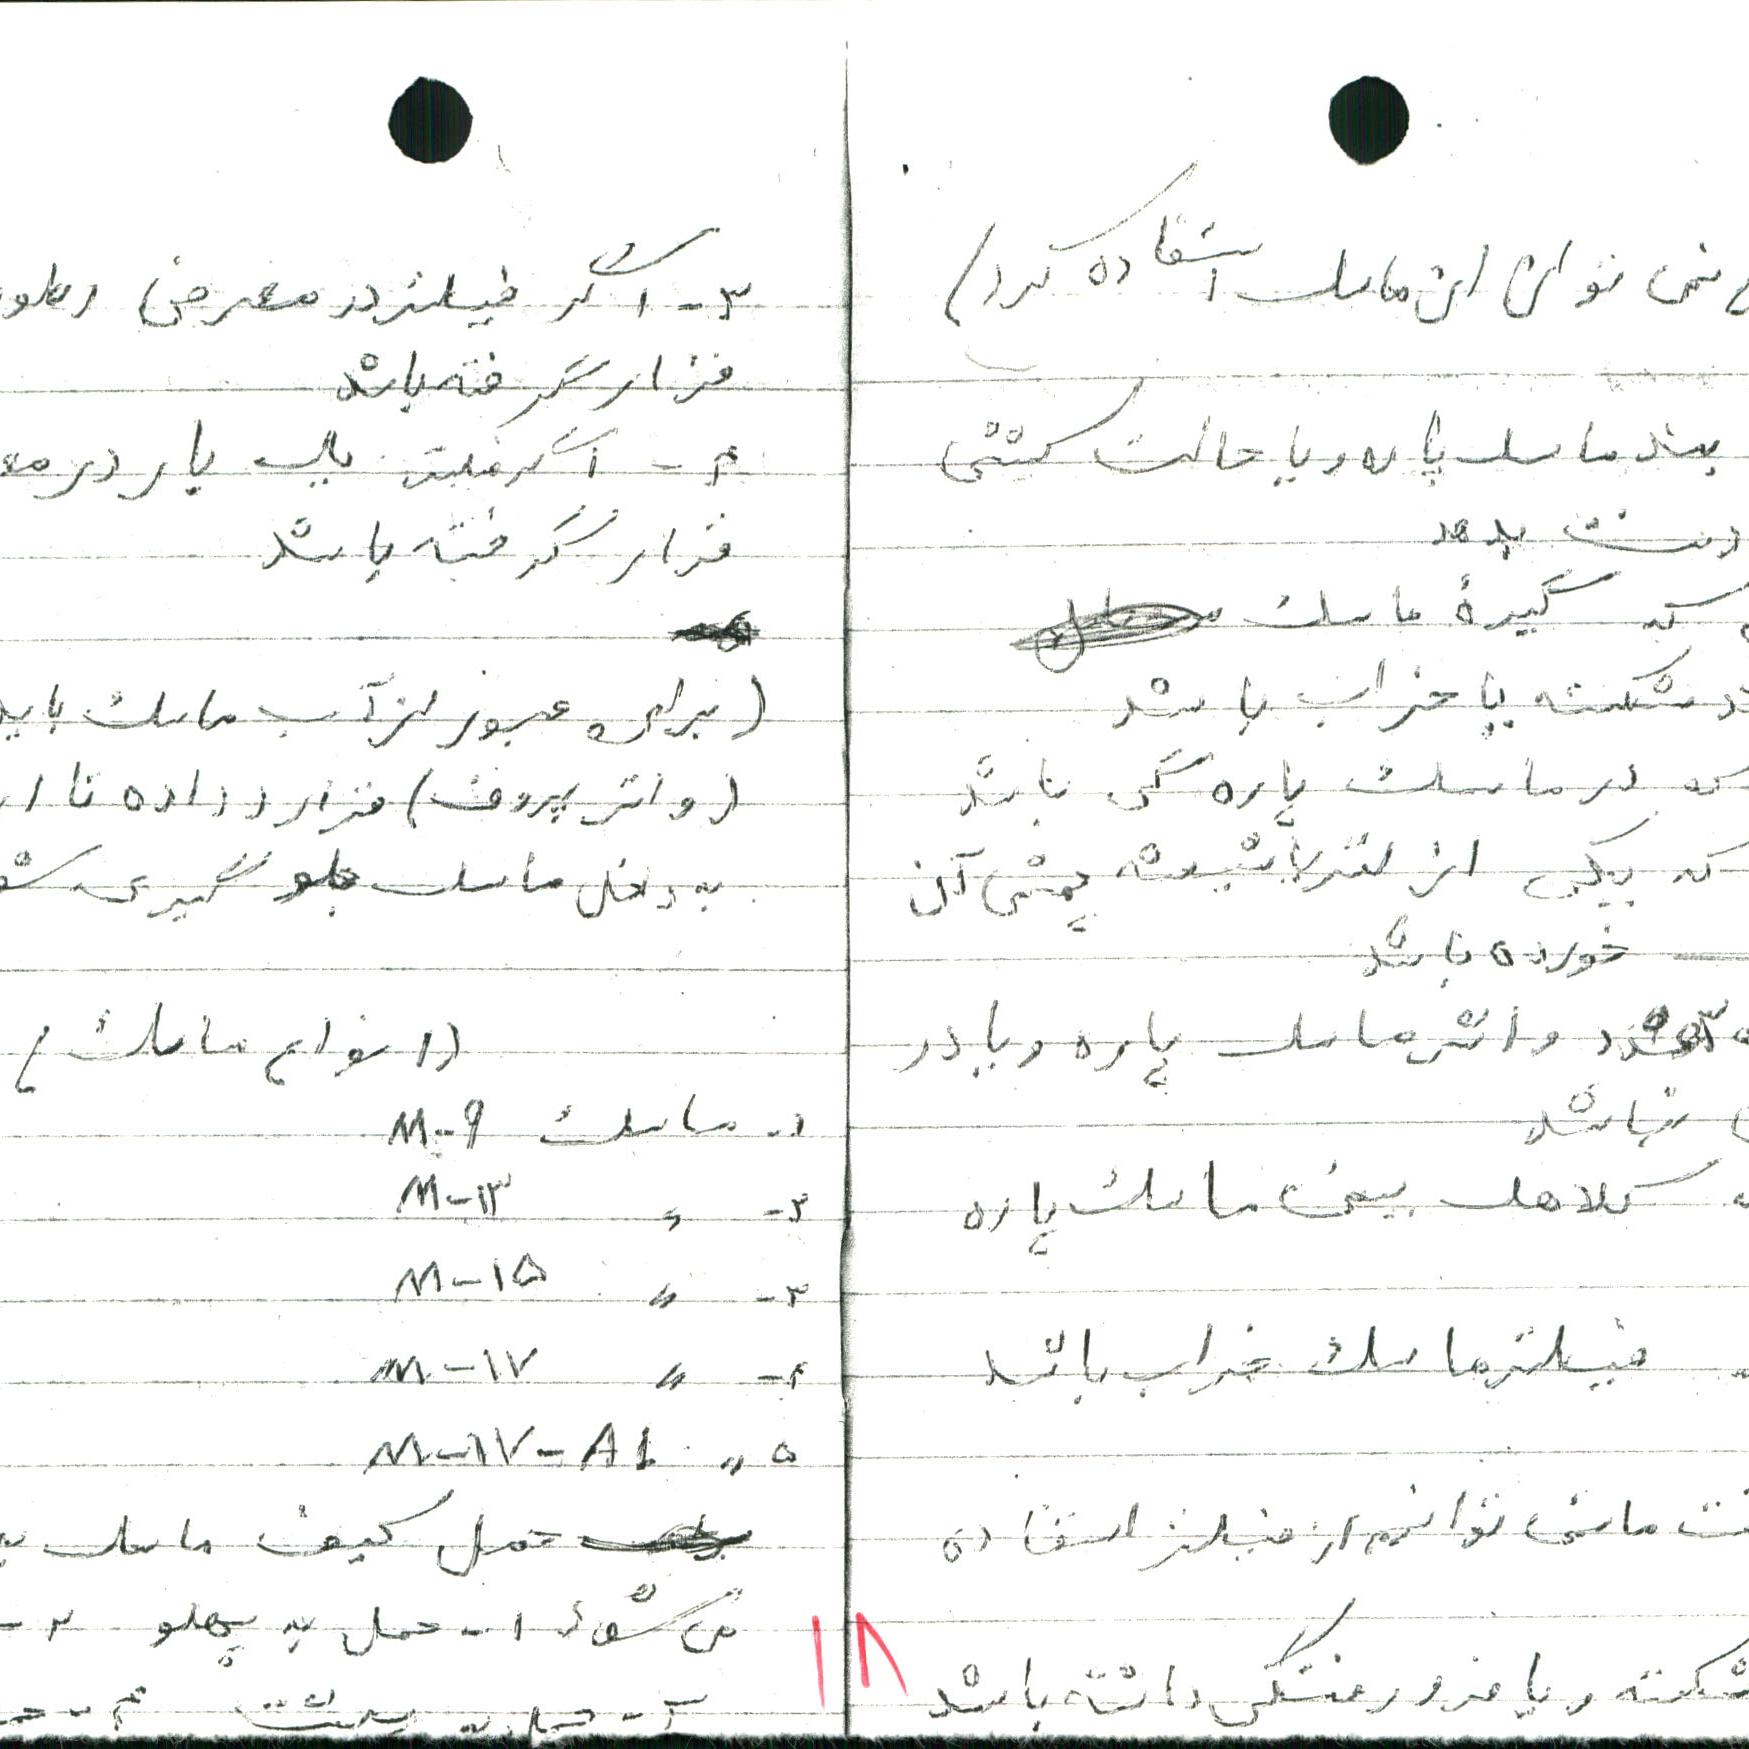 نمی توان این ماسک استفاده کرد)
بند ماسک پاره و یا حالت کیشی
دست بدهد
که گیرهٔ ماسک
شکسته یا خراب باشد
که در ماسک پاره گی باشد
که یکی از لنزها شیشه چشمی آن
خورده باشد
و اشر ماسک پاره و یا در
نباشد
کلاهک بینی ماسک پاره
فیلتر ماسک خراب باشد
ما نمی توانیم از فیلتر استفاده
شکسته و یا فرو رفتگی داشته باشد
۱۸
۳- اگر فیلتر در معرض رطو
قرار گرفته باشد
۴- اگر فیلتر یک بار در مع
قرار گرفته باشد
(برای عبور از آب ماسک باید
(واتر پروف) قرار داده تا از
به داخل ماسک جلو گیری شو
(انواع ماسک)
۱- ماسک M-9
۲- " M-۱۳
۳- " M-۱۵
۴- " M-۱۷
۵ " M-۱۷-A1
حمل کیف ماسک به
می شود ۱- حمل به پهلو ۲-
۳- حمل به پشت ۴- حم